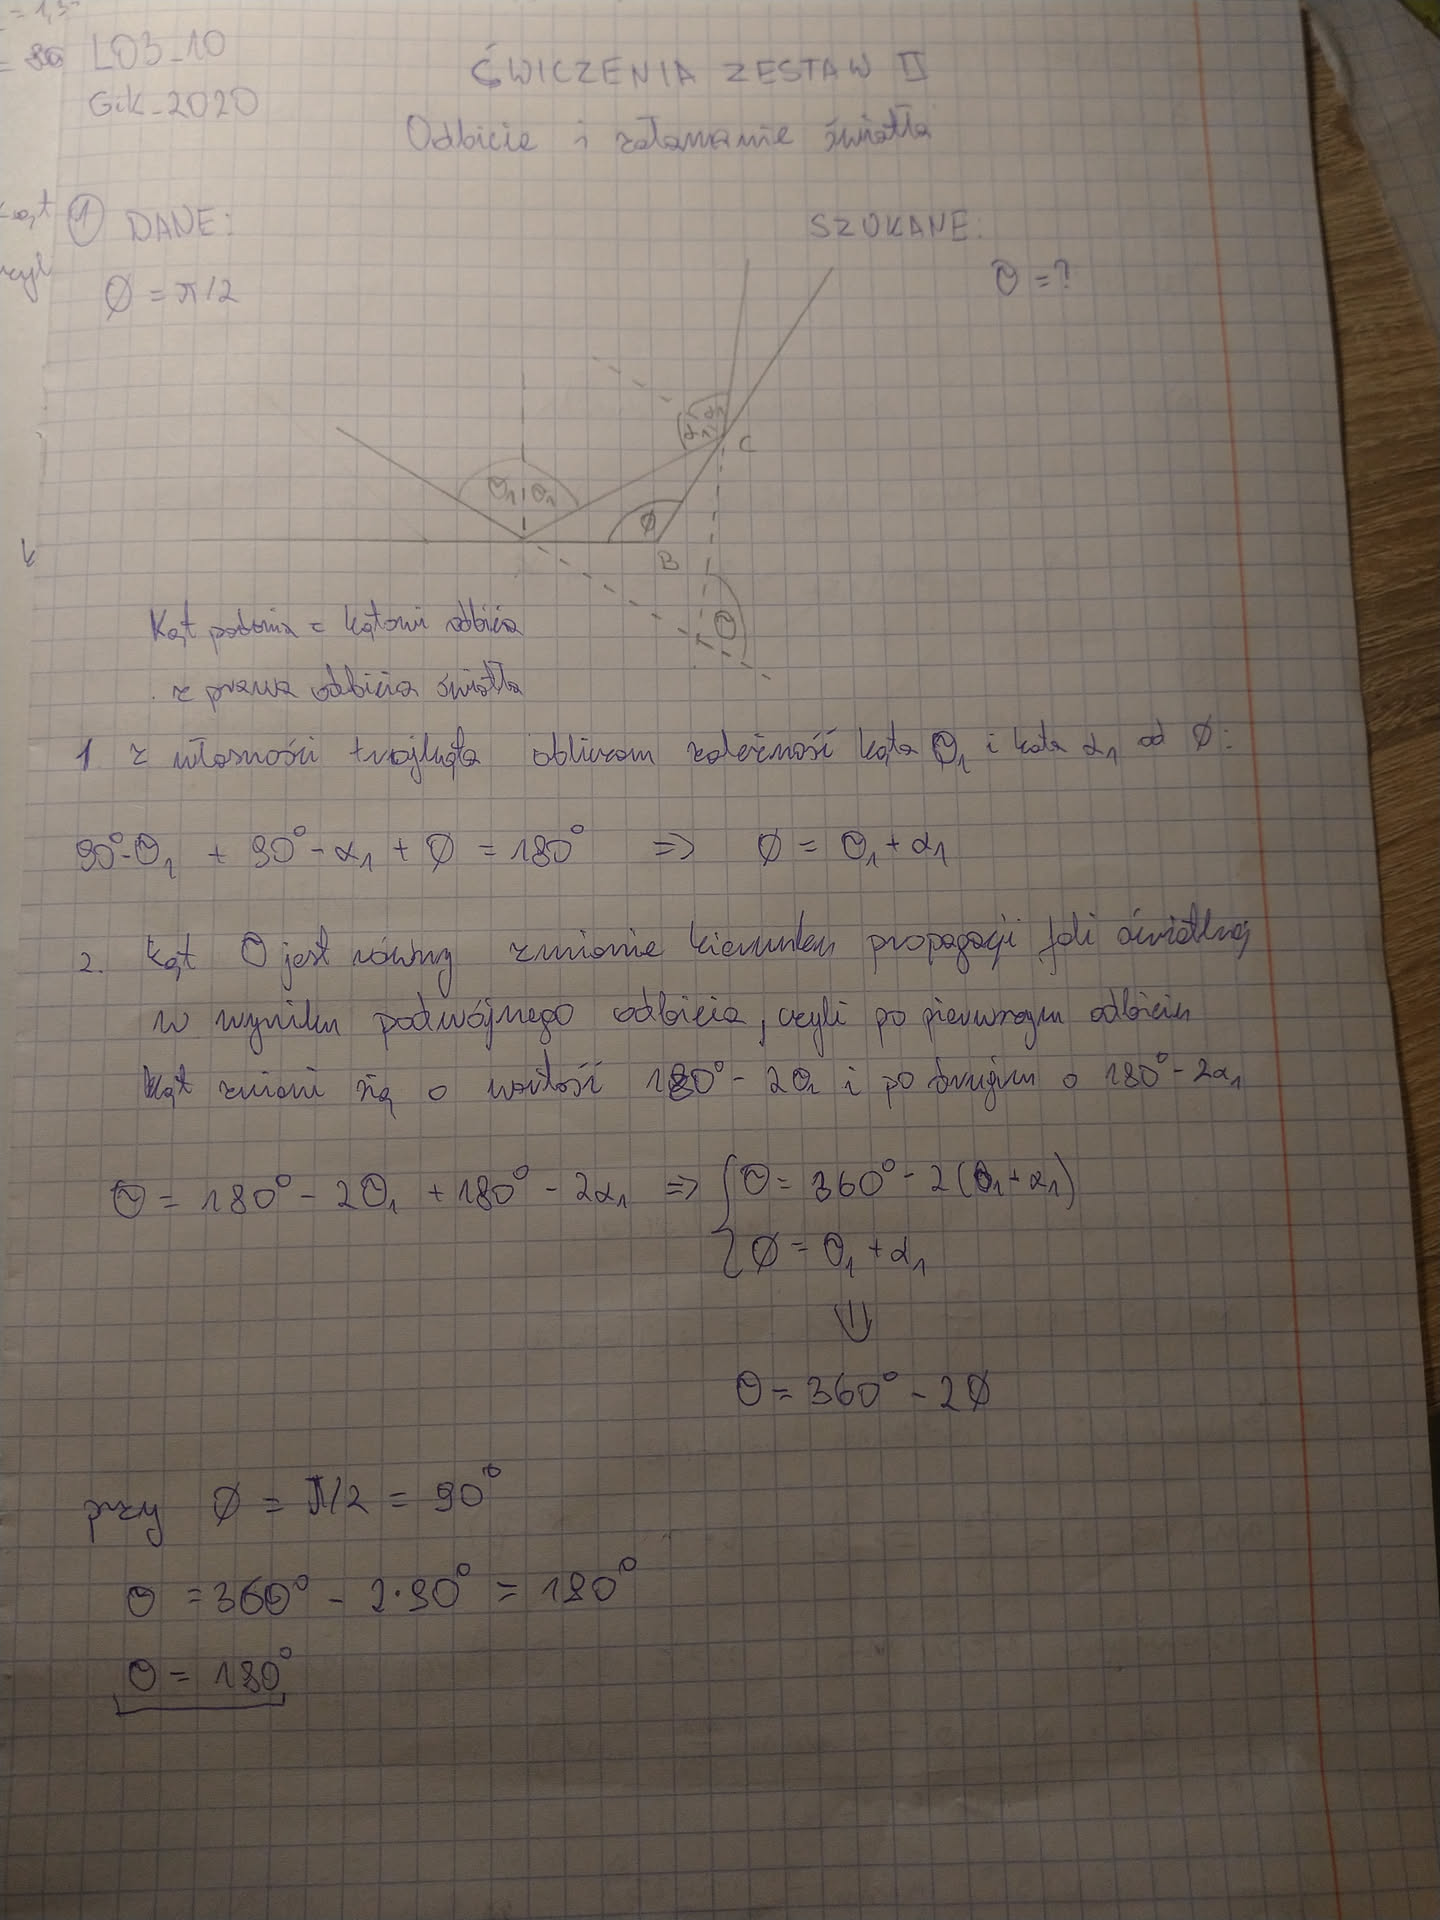 = 1,3
= 80 LO3_10
GiK_2020
ĆWICZENIA ZESTAW II
Odbicie i załamanie światła
kąt
① DANE:
SZUKANE:
∅ = π/2
Θ = ?
α₁
α₁
C
Θ₁ Θ₁
∅
B
Θ
Kąt padania = kątowi odbicia
z prawa odbicia światła
1 z własności trójkąta obliczam zależność kąta Θ₁ i kąta α₁ od ∅:
90°-Θ₁ + 90° - α₁ + ∅ = 180° => ∅ = Θ₁ + α₁
2. kąt Θ jest równy zmianie kierunku propagacji fali świetlnej
w wyniku podwójnego odbicia, czyli po pierwszym odbiciu
kąt zmieni się o wartość 180° - 2Θ₁ i po drugim o 180° - 2α₁
Θ = 180° - 2Θ₁ + 180° - 2α₁ => { Θ = 360° - 2(Θ₁ + α₁)
∅ = Θ₁ + α₁
⇓
Θ = 360° - 2∅
przy ∅ = π/2 = 90°
Θ = 360° - 2·90° = 180°
Θ = 180°